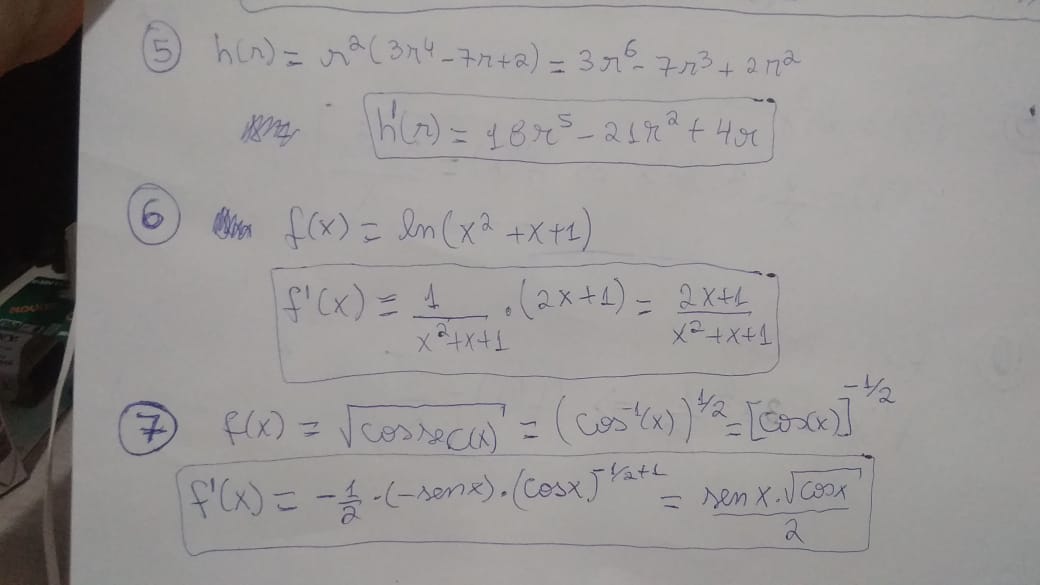 5 h(r) = r²(3r⁴ - 7r + 2) = 3r⁶ - 7r³ + 2r²
h'(r) = 18r⁵ - 21r² + 4r
6 f(x) = ln(x² + x + 1)
f'(x) = 1/(x² + x + 1) · (2x + 1) = (2x + 1)/(x² + x + 1)
7 f(x) = √cossec(x) = (cos⁻¹(x))^1/2 = [cos(x)]^-1/2
f'(x) = -1/2 · (-sen x) · (cos x)^-1/2+1 = (sen x · √cos x)/2